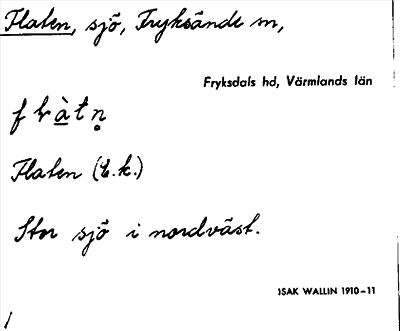 Flaten, sjö, Fryksände sn,
Fryksdals hd, Värmlands län
Flaten (E.k.)
Stor sjö i nordväst.
ISAK WALLIN 1910-11